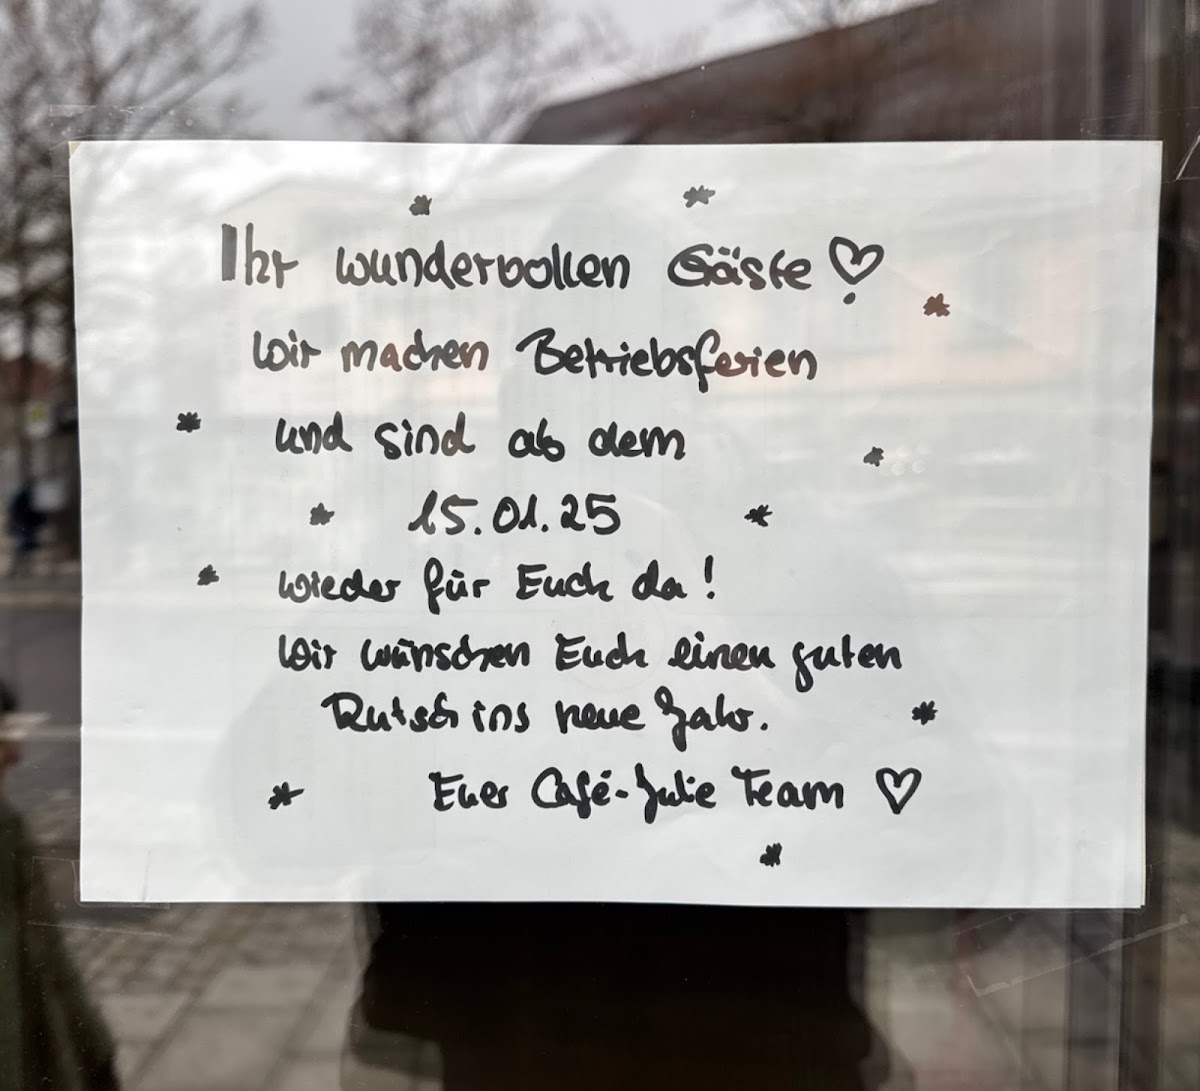 Ihr wundervollen Gäste♡
Wir machen Betriebsferien
und sind ab dem
15.01.25
wieder für Euch da!
Wir wünschen Euch einen guten
Rutsch ins neue Jahr.
Euer Café-Julie Team ♡